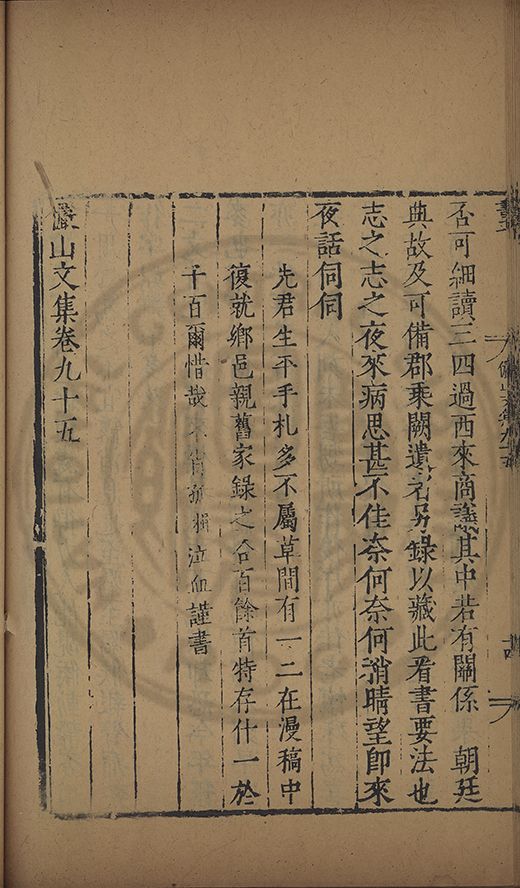 否可細讀三四過西來商議其中若有關係 朝廷
典故及可備郡乘闕遺者另錄以藏此看書要法也
志之志之夜來病思甚不佳奈何奈何稍晴望即來
夜話伺伺
先君生平手札多不屬草間有一二在漫稿中
復就鄉邑親舊家錄之合百餘首特存什一於
千百爾惜哉不肖孤楫泣血謹書
儼山文集卷九十五